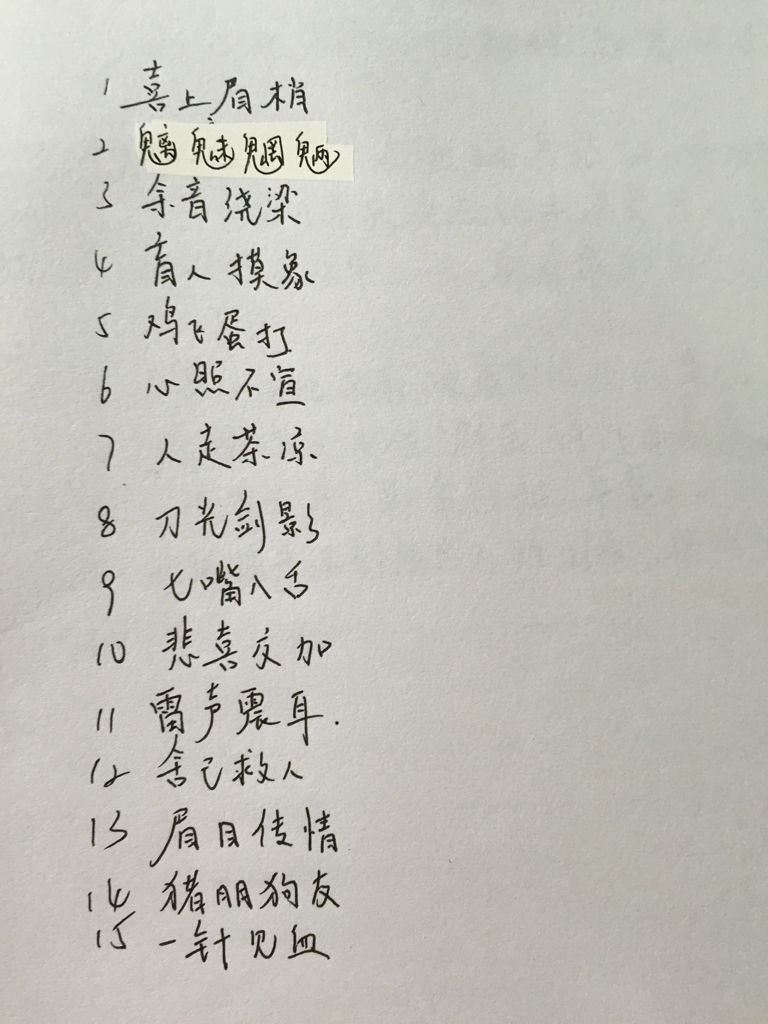 1 喜上眉梢
2 魑魅魍魉
3 余音绕梁
4 盲人摸象
5 鸡飞蛋打
6 心照不宣
7 人走茶凉
8 刀光剑影
9 七嘴八舌
10 悲喜交加
11 雷声震耳.
12 舍己救人
13 眉目传情
14 猪朋狗友
15 一针见血